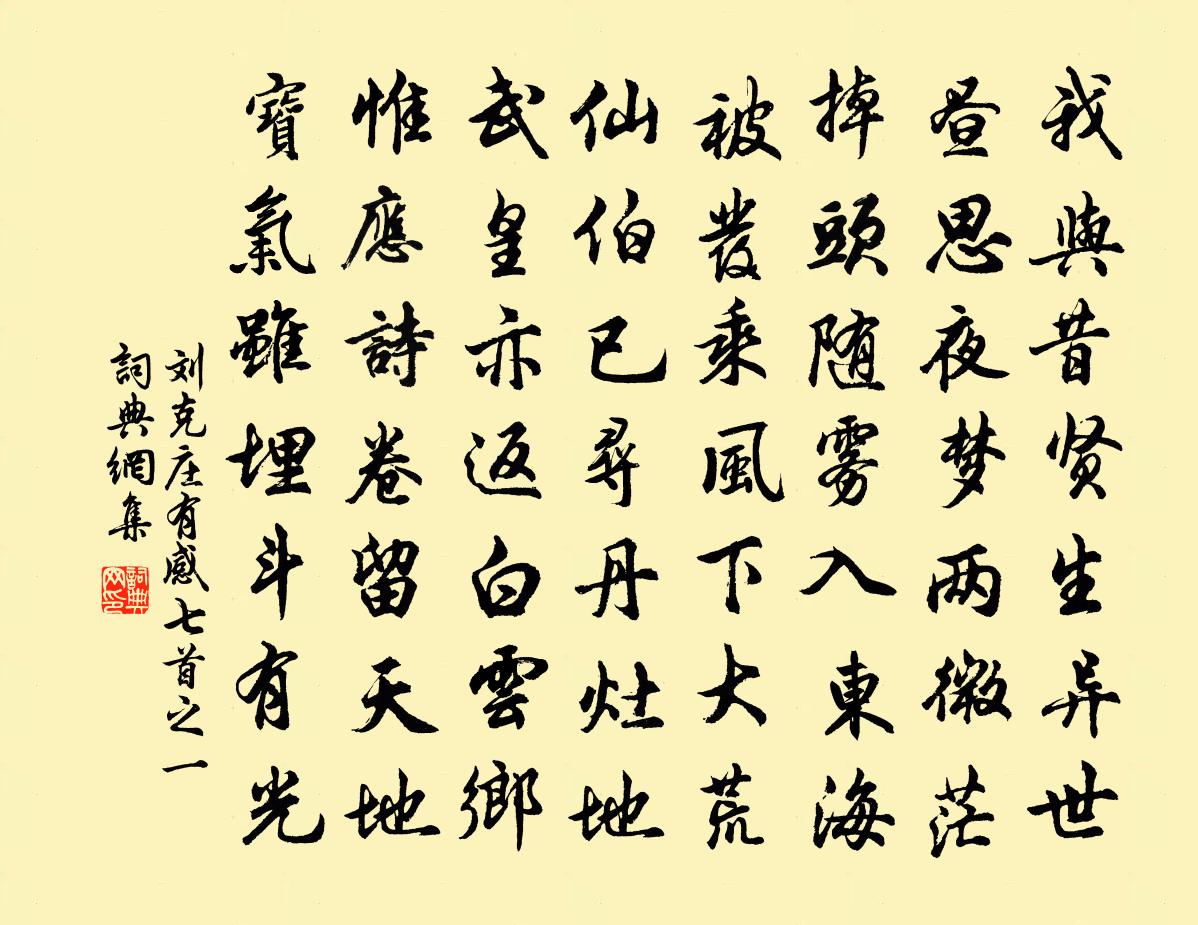 我與昔贤生异世
昼思夜梦两微茫
掉頭随雾入東海
被發乘風下大荒
仙伯已尋丹灶地
武皇亦返白雲鄉
惟應詩卷留天地
寶氣雖埋斗有光
刘克庄有感七首之一
詞典網集
詞典網印